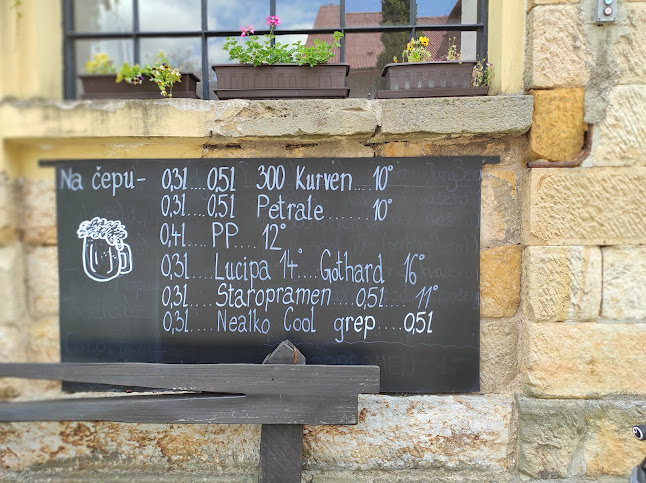 Na čepu- 0,3l....0,5l 300 Kurven....10°
0,3l....0,5l Petrale.......10°
0,4l....PP....12°
0,3l....Lucipa 14°....Gothard 16°
0,3l....Staropramen....0,5l 11°
0,3l....Nealko Cool grep.....0,5l